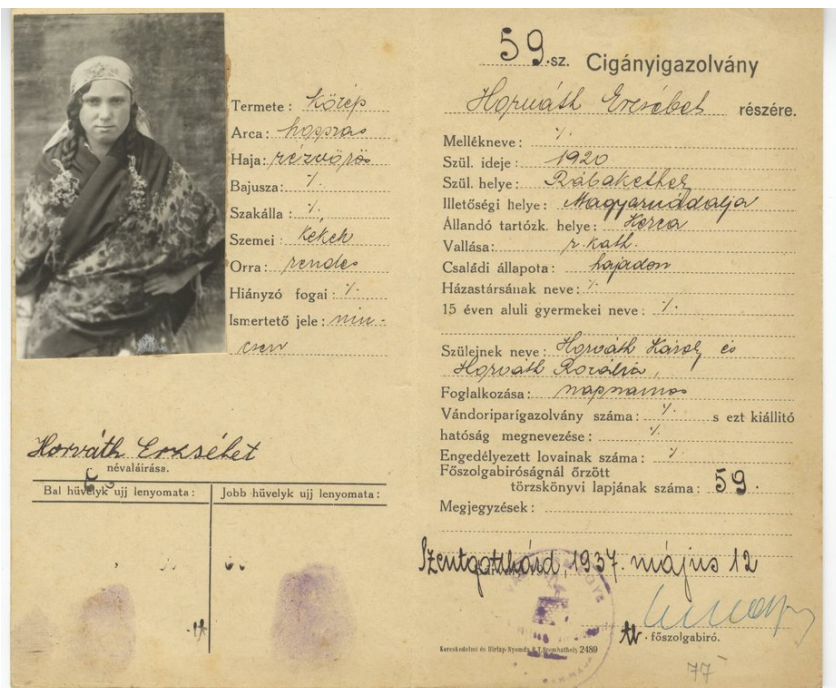 Termete: közép
Arca: hosszas
Haja: rézvörös
Bajusza: ⁒
Szakálla: ⁒
Szemei: kékek
Orra: rendes
Hiányzó fogai: ⁒
Ismertető jele: nin-
csen
Horváth Erzsébet
névaláirása.
Bal hüvelyk ujj lenyomata: Jobb hüvelyk ujj lenyomata:
59.sz. Cigányigazolvány
Horváth Erzsébet részére.
Mellékneve: ⁒
Szül. ideje: 1920
Szül. helye: Rábakethely
Illetőségi helye: Magyarnádalja
Állandó tartózk. helye: Kerca
Vallása: r. kath.
Családi állapota: hajadon
Házastársának neve: ⁒
15 éven aluli gyermekei neve: ⁒
Szülejnek neve: Horváth Károly és
Horváth Rozália,
Foglalkozása: napszámos
Vándoriparigazolvány száma: ⁒ s ezt kiállitó
hatóság megnevezése: ⁒
Engedélyezett lovainak száma: ⁒
Főszolgabiróságnál őrzött
törzskönyvi lapjának száma: 59.
Megjegyzések:
Szentgotthárd, 1937. május 12
főszolgabiró.
Kereskedelmi és Hirlap-Nyomda R.T. Szombathely 2489
77